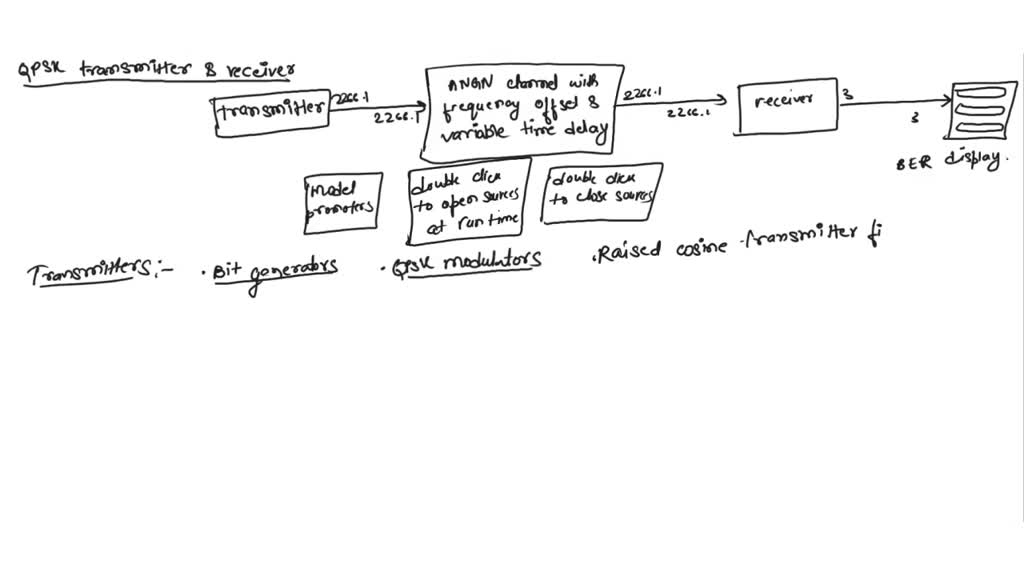 QPSK transmitter & receiver
transmitter
2266.1
2266.1
AWGN channel with
frequency offset &
variable time delay
2266.1
2266.1
receiver
3
3
BER display.
Model
promoters
double click
to open sources
at run time
double click
to close sources
Transmitters:- • Bit generators • QPSK modulators • Raised cosine transmitter fi